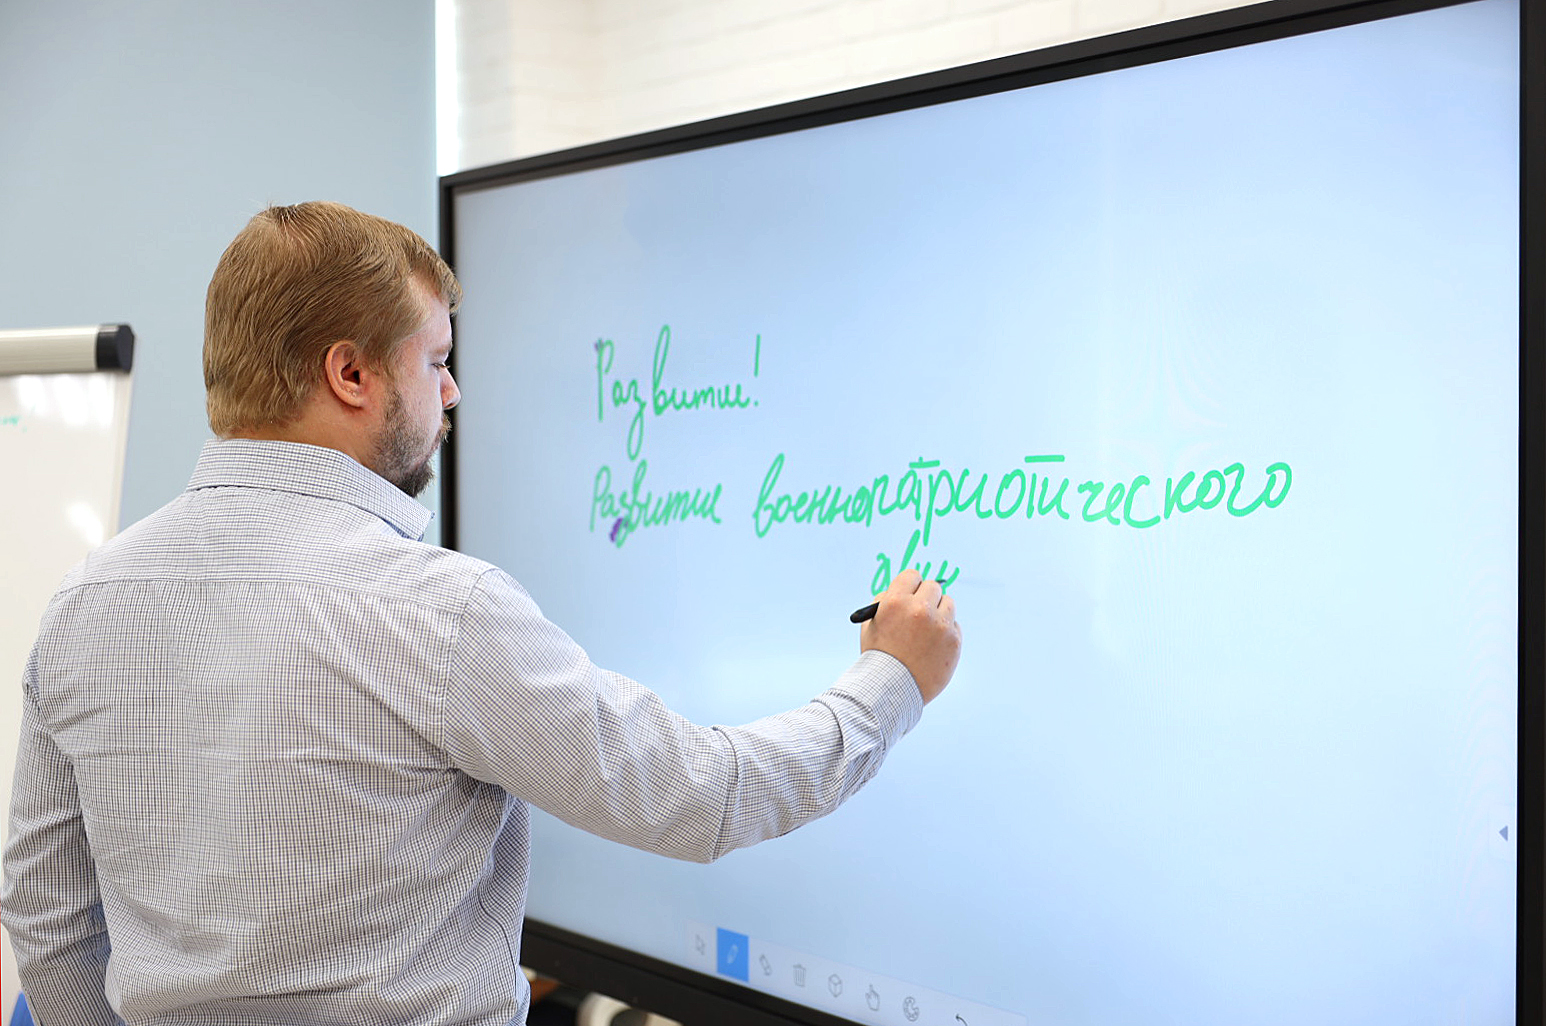 Развитие!
Развитие военнопатриотического